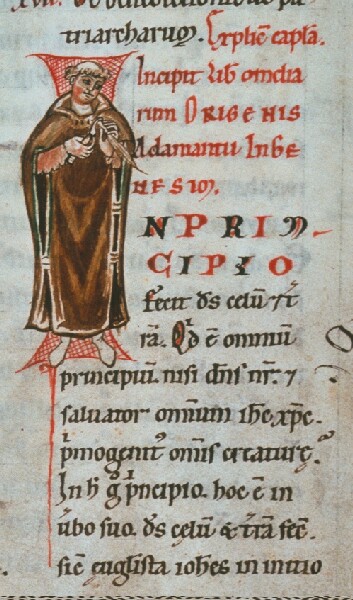 triarcharuꝫ. Expliē capla.
Incipit lib omelia
rum ORIGENIS
Adamantii In GE
NESIꝫ.
IN PRIN
CIPIO
fecit ds̄ celū ⁊ t̄
rā. Qd ē omniū
principiū. nisi dn̄s nr̄. ⁊
saluator omnium ihc xp̄c.
pͥmogenitꝰ omīs creature.
In h gͦ pͥncipio. hoc ē in
ūbo suo. ds̄ celū & t̄rā fec̄.
sic̄ eūglista iohes in inicio